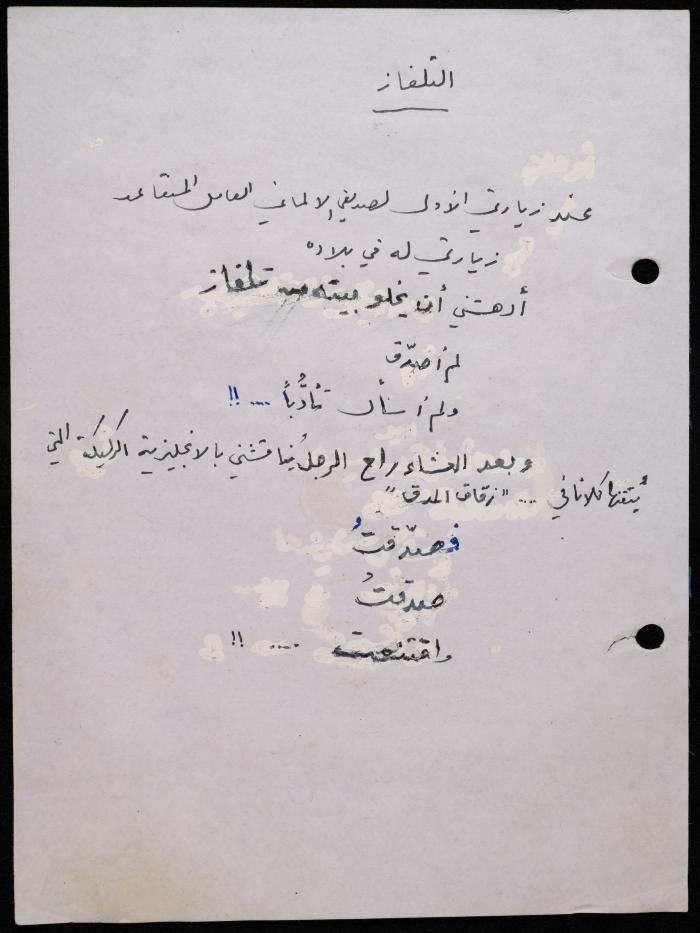 التلفاز
عند زيارتي الأولى لصديقي الالماني العامل المتقاعد
زيارتي له في بلاده
أدهشني أن يخلو بيته من تلفاز
لم أصدّق
ولم أسأل تأدُّباً .... !!
وبعد العشاء راح الرجل يُناقشني بالانجليزية الركيكة التي
يُتقنها كلانا في .... "زقاق المدق"
فصدّقتُ
صدقتُ
واقتنعت .... !!